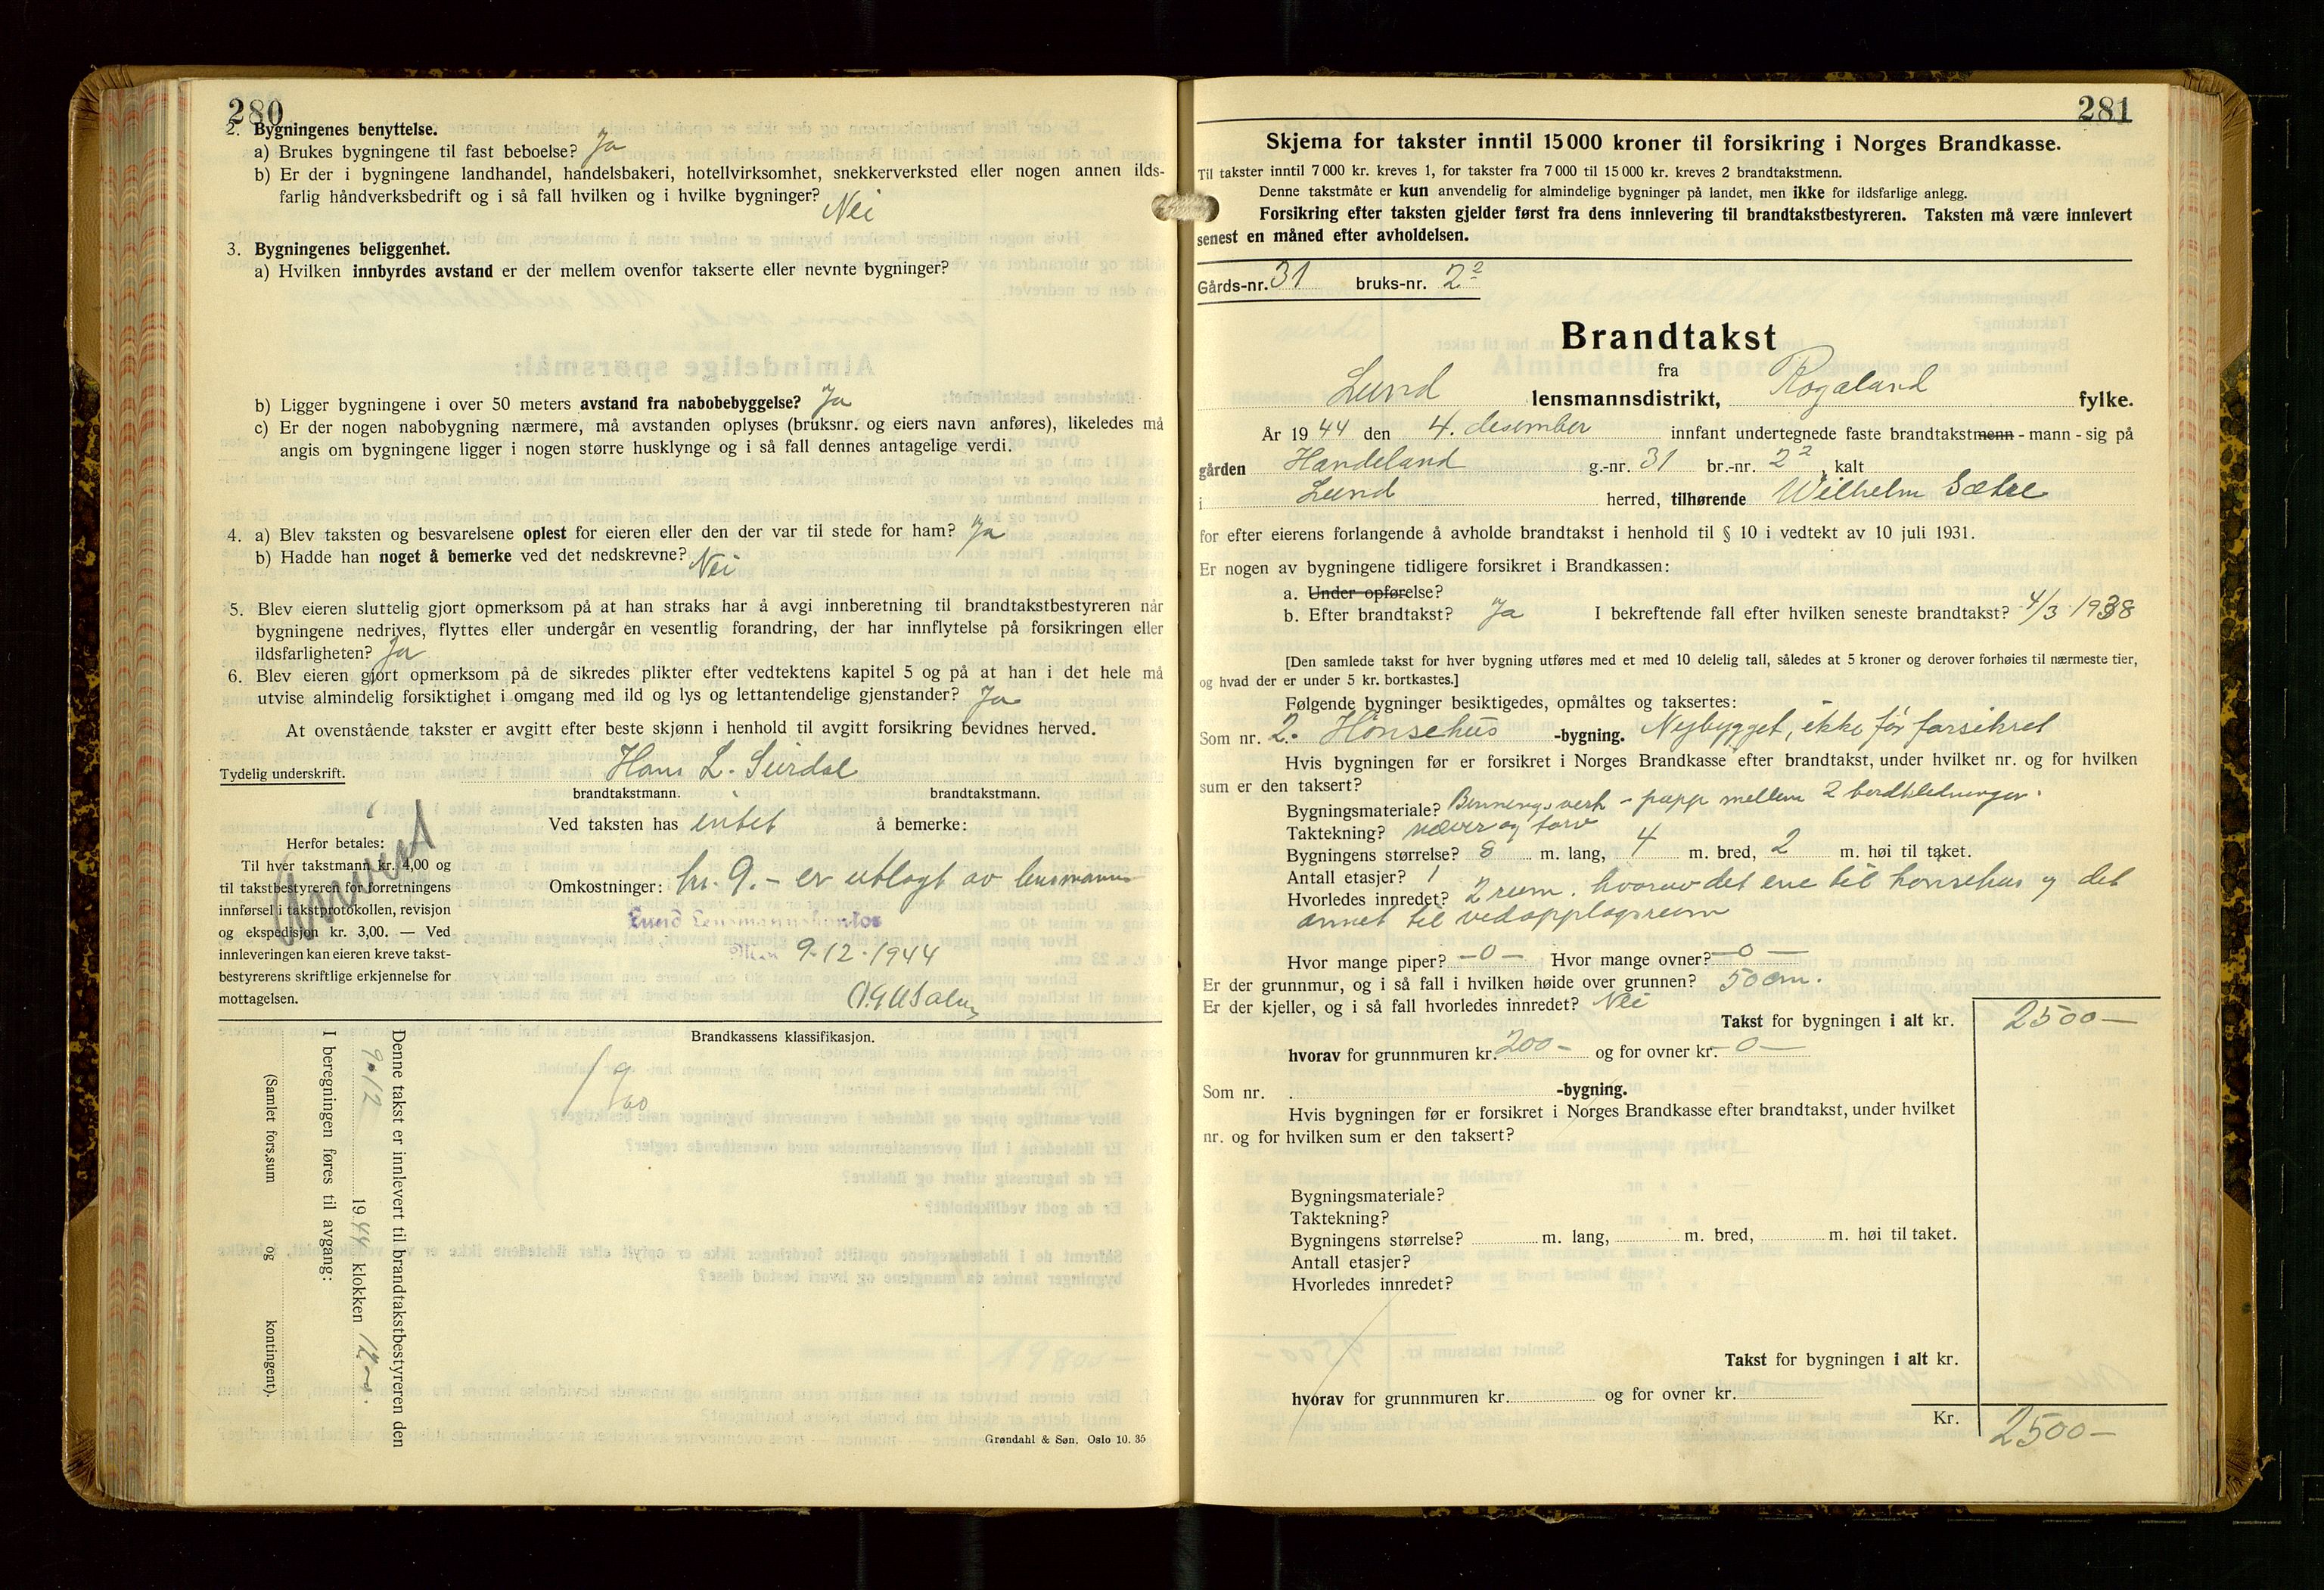 280
2. Bygningenes benyttelse.
a) Brukes bygningene til fast beboelse? Ja
b) Er der i bygningene landhandel, handelsbakeri, hotellvirksomhet, snekkerverksted eller nogen annen ilds-
farlig håndverksbedrift og i så fall hvilken og i hvilke bygninger? Nei
3. Bygningenes beliggenhet.
a) Hvilken innbyrdes avstand er der mellem ovenfor takserte eller nevnte bygninger?
b) Ligger bygningene i over 50 meters avstand fra nabobebyggelse? Ja
c) Er der nogen nabobygning nærmere, må avstanden oplyses (bruksnr. og eiers navn anføres), likeledes må
angis om bygningene ligger i nogen større husklynge og i så fall dennes antagelige verdi.
4. a) Blev taksten og besvarelsene oplest for eieren eller den der var til stede for ham? Ja
b) Hadde han noget å bemerke ved det nedskrevne? Nei
5. Blev eieren sluttelig gjort opmerksom på at han straks har å avgi innberetning til brandtakstbestyreren når
bygningene nedrives, flyttes eller undergår en vesentlig forandring, der har innflytelse på forsikringen eller
ildsfarligheten? Ja
6. Blev eieren gjort opmerksom på de sikredes plikter efter vedtektens kapitel 5 og på at han i det hele må
utvise almindelig forsiktighet i omgang med ild og lys og lettantendelige gjenstander? Ja
At ovenstående takster er avgitt efter beste skjønn i henhold til avgitt forsikring bevidnes herved.
Tydelig underskrift. Hans L. Surdal
brandtakstmann. brandtakstmann.
Ved taksten has intet å bemerke:
Herfor betales:
Til hver takstmann kr. 4,00 og
til takstbestyreren for forretningens
innførsel i takstprotokollen, revisjon
og ekspedisjon kr. 3,00. — Ved
innleveringen kan eieren kreve takst-
bestyrerens skriftlige erkjennelse for
mottagelsen.
Omkostninger: kr. 9.- er utlagt av lensmann
Lund Lensmannskontor
9.12.1944
Brandkassens klassifikasjon.
Denne takst er innlevert til brandtakstbestyreren den
9.12 1944 klokken 12
I beregningen føres til avgang:
(Samlet fors.sum og kontingent).
Grøndahl & Søn, Oslo 10. 35
281
Skjema for takster inntil 15000 kroner til forsikring i Norges Brandkasse.
Til takster inntil 7000 kr. kreves 1, for takster fra 7000 til 15000 kr. kreves 2 brandtakstmenn.
Denne takstmåte er kun anvendelig for almindelige bygninger på landet, men ikke for ildsfarlige anlegg.
Forsikring efter taksten gjelder først fra dens innlevering til brandtakstbestyreren. Taksten må være innlevert
senest en måned efter avholdelsen.
Gårds-nr. 31 bruks-nr. 2²
Brandtakst
fra
Lund lensmannsdistrikt, Rogaland fylke.
År 1944 den 4. desember innfant undertegnede faste brandtakstmenn - mann - sig på
gården Handeland g.-nr. 31 br.-nr. 2², kalt
i Lund herred, tilhørende Wilhelm Sætre
for efter eierens forlangende å avholde brandtakst i henhold til § 10 i vedtekt av 10 juli 1931.
Er nogen av bygningene tidligere forsikret i Brandkassen:
a. Under opførelse?
b. Efter brandtakst? Ja I bekreftende fall efter hvilken seneste brandtakst? 4/3 1938
[Den samlede takst for hver bygning utføres med et med 10 delelig tall, således at 5 kroner og derover forhøies til nærmeste tier,
og hvad der er under 5 kr. bortkastes.]
Følgende bygninger besiktigedes, opmåltes og taksertes:
Som nr. 2. Hönsehus -bygning. Nybygget, ikke för forsikret
Hvis bygningen før er forsikret i Norges Brandkasse efter brandtakst, under hvilket nr. og for hvilken
sum er den taksert?
Bygningsmateriale? Binningsverk - papp mellem 2 bordkledninger.
Taktekning? næver og torv
Bygningens størrelse? 8 m. lang, 4 m. bred, 2 m. høi til taket.
Antall etasjer? 1
Hvorledes innredet? 2 rum. hvorav det ene til hønsehus og det
annet til vedopplagsrum
Hvor mange piper? -0- Hvor mange ovner? -0-
Er der grunnmur, og i så fall i hvilken høide over grunnen? 50 cm.
Er der kjeller, og i så fall hvorledes innredet? Nei
Takst for bygningen i alt kr. 2500-
hvorav for grunnmuren kr. 200- og for ovner kr. -0-
Som nr. -bygning.
Hvis bygningen før er forsikret i Norges Brandkasse efter brandtakst, under hvilket
nr. og for hvilken sum er den taksert?
Bygningsmateriale?
Taktekning?
Bygningens størrelse? m. lang, m. bred, m. høi til taket.
Antall etasjer?
Hvorledes innredet?
Takst for bygningen i alt kr.
hvorav for grunnmuren kr. og for ovner kr.
Kr. 2500-